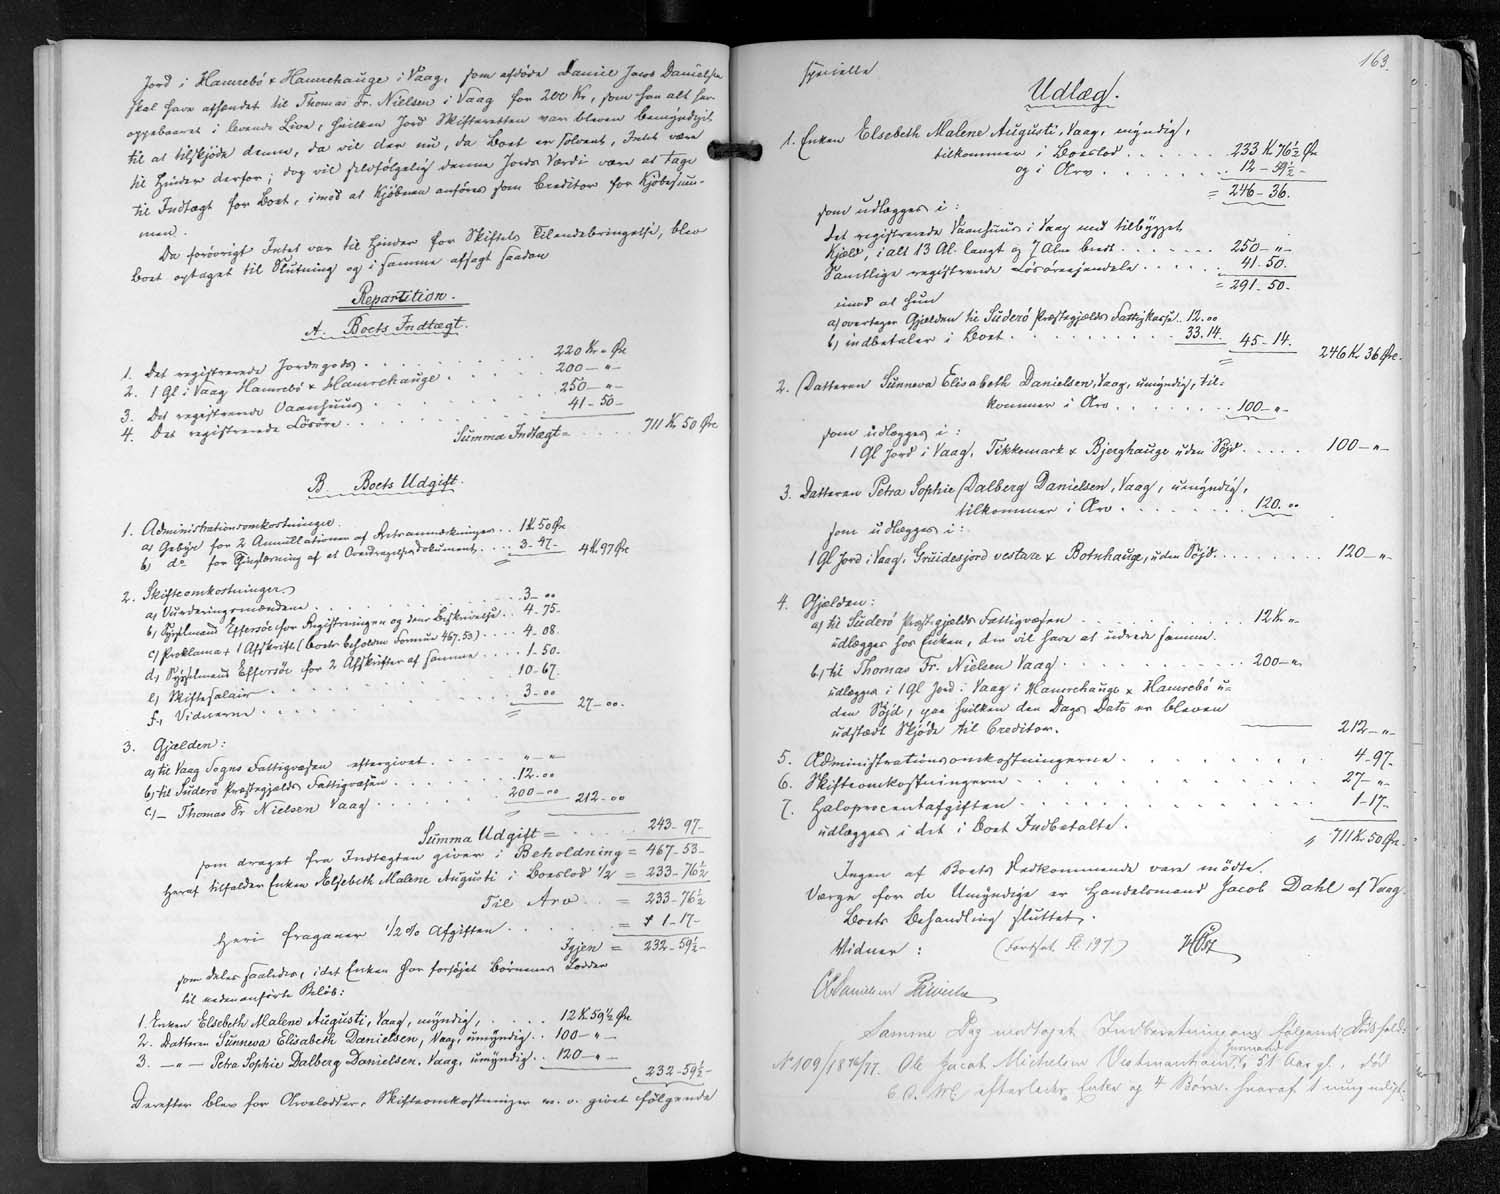 Jord i Hamrebø & Hamrehauge i Vaag, som afdøde Daniel Jacob Danielsen
skal have afhændet til Thomas Fr. Nielsen i Vaag for 200 Kr, som han alt har
oppebaaret i levende Live, hvilken Jord Skifteretten var bleven bemyndiget
til at tilskjøde denne, da vil der nu, da Boet er solvent, Intet være
til Hinder derfor; dog vil selvfølgelig denne Jords Værdi være at tage
til Indtægt for Boet, imod at Kjøberen anføres som Creditor for Kjøbesum-
men.
Da forøvrigt Intet var til Hinder for Skiftets Tilendebringelse, blev
Boet optaget til Slutning og i samme afsagt saadan
Repartition.
A. Boets Indtægt.
1. Det registrerede Jordegods . . . 220 Kr " Øre
2. 1 Gl i Vaag Hamrebø & Hamrehauge . . . 200 — " —
3. Det registrerede Vaanhuus . . . 250 — " —
4. Det registrerede Løsøre . . . 41 - 50 -
Summa Indtægt = . . . 711 Kr 50 Øre
B Boets Udgift.
1. Administrationsomkostninger
a) Gebyr for 2 Annullationer af Retsanmærkninger . . 1 K. 50 Øre
b) do for Thinglæsning af et Overdragelsesdokument . . . 3 - 47 - 4 K. 97 Øre
2. Skifteomkostninger
a) Vurderingsmændene . . . 3 - 00
b) Sysselmand Effersøe for Registreringen og dens Beskrivelse . . 4 - 75.
c) Proklama + 1 Afskrift (Boets beholdne Formue 467.53) . . . 4 - 08.
d) Sysselmand Effersøe for 2 Afskrifter af samme . . . 1 - 50.
e) Skiftesalair . . . 10 - 67.
f) Vidnerne . . . 3 - 00 27 - 00.
3. Gjælden:
a) til Vaag Sogns Fattigvæsen eftergivet . . . " - "
b) til Suderø Præstegjælds Fattigvæsen . . . 12.00
c) — Thomas Fr Nielsen Vaag . . . 200 - 00 212 - 00
Summa Udgift = . . . 243 - 97 -
som draget fra Indtægten giver i Beholdning = 467 - 53 -
Heraf tilfalder Enken Elsebeth Malene Augusti i Boeslod 1/2 = 233 - 76 1/2
Til Arv . . = 233 - 76 1/2
Heri fragaaer 1/2 % Afgiften . . . = 1 - 17 -
Igjen = 232 - 59 1/2 -
som deles saaledes, idet Enken har forhøjet Børnenes Lodder
til nedenanførte Beløb:
1. Enken Elsebeth Malene Augusti, Vaag, myndig, . . . 12 K. 59 1/2 Øre
2. Datteren Sunneva Elisabeth Danielsen, Vaag, umyndig . . 100 — " —
3. — " — Petra Sophie Dalberg Danielsen. Vaag, umyndig . . 120 — " — 232 - 59 1/2 -
Derefter blev for Arvelodder, Skifteomkostninger m. v. givet følgende
163.
specielle
Udlæg.
1. Enken Elsebeth Malene Augusti, Vaag, myndig,
tilkommer i Boeslod . . . 233 K 76 1/2 Øre
og i Arv . . . 12 - 59 1/2 -
= 246 - 36.
som udlægges i:
det registrerede Vaanhuus i Vaag med tilbygget
Kjæld, i alt 13 Al. langt og 7 Alen bredt . . . 250 — " —
Samtlige registrerede Løsøreejendele . . . 41 - 50.
= 291 - 50 -
imod at hun
a) overtager Gjælden til Suderø Præstegjælds Fattigkasse. 12.00
b) indbetaler i Boet . . . 33.14. 45 - 14. 246 Kr. 36 Øre.
2. Datteren Sunneva Elisabeth Danielsen, Vaag, umyndig, til-
kommer i Arv . . . 100 — " —
som udlægges i:
1 Gl Jord i Vaag, Tikkemark & Bjerghauge uden Søjd . . . 100 — " —
3. Datteren Petra Sophie Dalberg Danielsen, Vaag, umyndig,
tilkommer i Arv . . . 120.00
som udlægges i:
1 Gl Jord i Vaag, Gruidesjord vestare & Botnhauge, uden Søjd . . . 120 — " —
4. Gjælden:
a) til Suderø Præstegjælds Fattigvæsen . . . 12 K. " —
udlægges hos Enken, der vil have at udrede samme.
b) til Thomas Fr. Nielsen Vaag . . . 200 — " —
udlægges i 1 Gl Jord i Vaag i Hamrehauge & Hamrebø u-
den Søjd, paa hvilken den Dags Dato er bleven
udstædt Skjøde til Creditor. 212 — " —
5. Administrationsomkostningerne . . . 4 - 97 -
6. Skifteomkostningerne . . . 27 — " —
7. Halvprocentafgiften . . . 1 - 17 -
udlægges i det i Boet Indbetalte. 711 Kr. 50 Øre.
Ingen af Boets Vedkommende vare mødte.
Værge for de Umyndige er Handelsmand Jacob Dahl af Vaag.
Boets Behandling sluttet.
Vidner: (Fortsat fl. 197) HØst
Danielsen
Samme Dag modtoges Indberetning om følgende Dødsfald:
N° 109/1876/77. Ole Jacob Michelsen Vestmanhavn, 51 Aar gl., død
6 d. M. efterlader Enke og 4 Børn hvoraf 1 umyndigt.